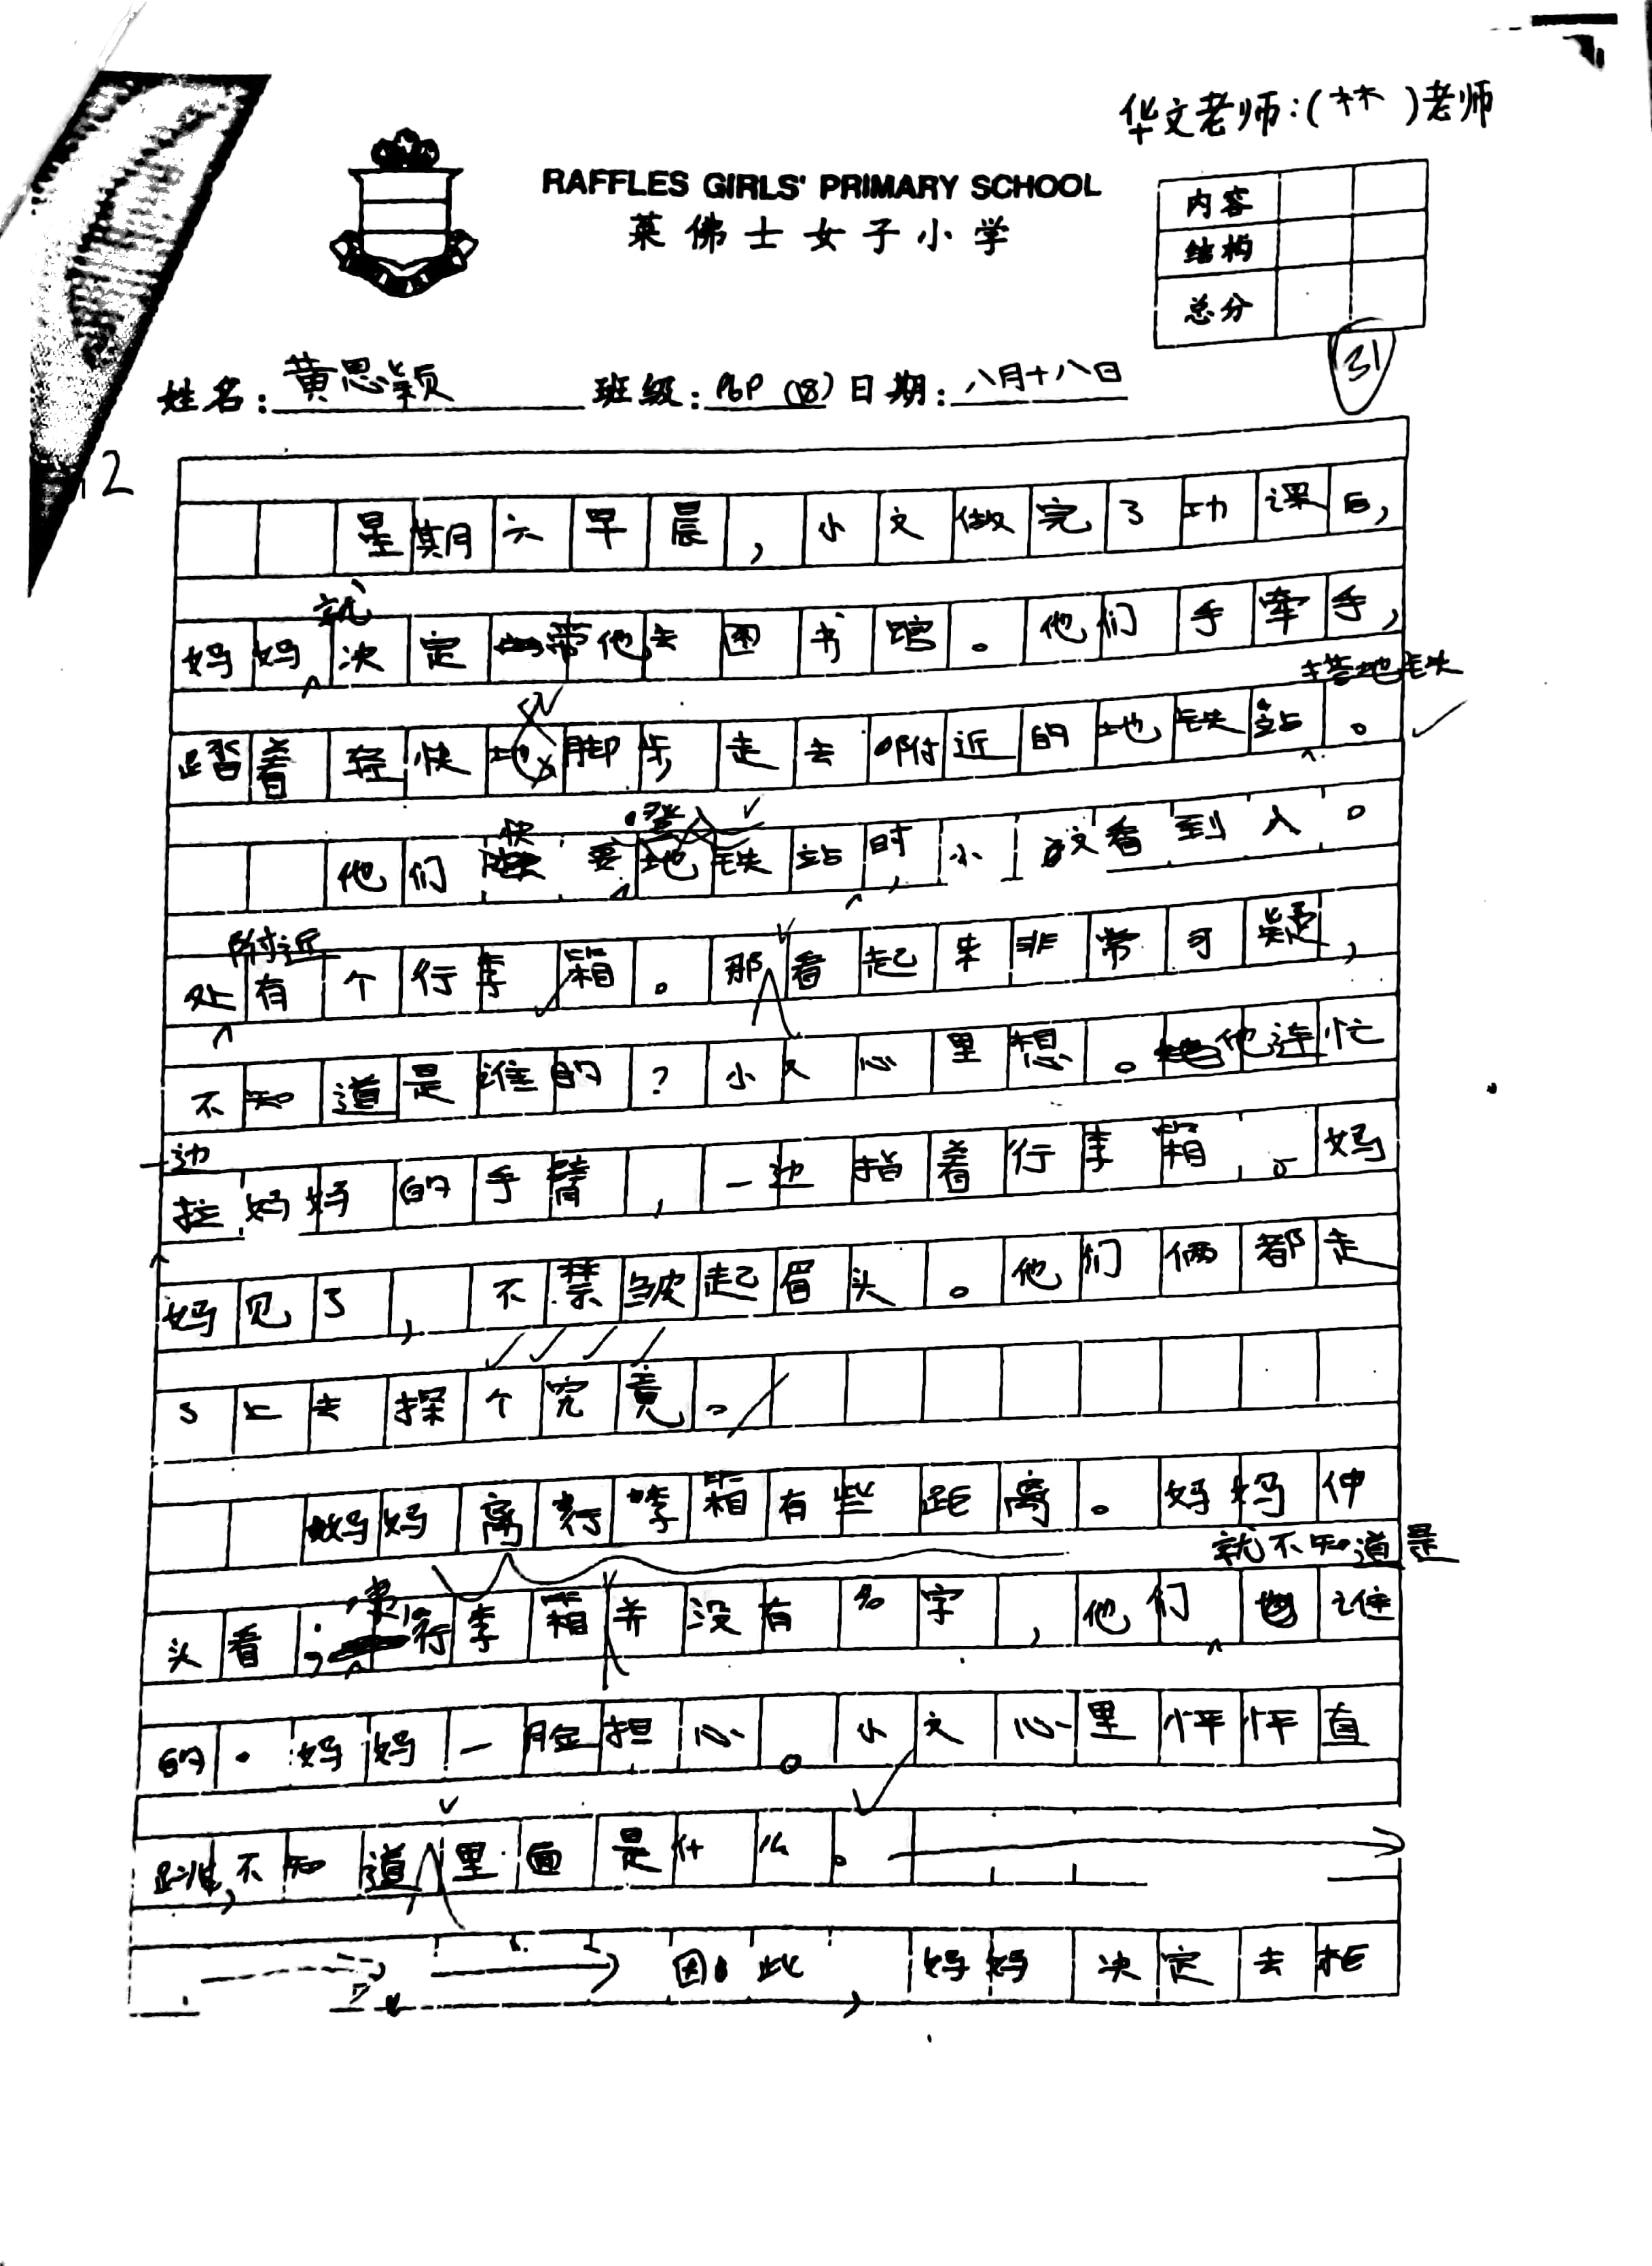 华文老师:(林)老师
RAFFLES GIRLS' PRIMARY SCHOOL
莱佛士女子小学
内容
结构
总分
31
姓名:黄思颖 班级:P6P (18) 日期:八月十八日
2
星期六早晨,小文做完了功课后,
就
妈妈决定带他去图书馆。他们手牵手,
搭地铁
踏着轻快地脚步走去附近的地铁站。
快 登入
他们要地铁站时,小文看到入口
附近
处有个行李箱。那看起来非常可疑,
不知道是谁的?小文心里想。他连忙
一边
拉妈妈的手臂,一边指着行李箱。妈
妈见了,不禁皱起眉头。他们俩都走
了上去探个究竟。
妈妈离行李箱有些距离。妈妈伸
就不知道是
头看,行李箱并没有名字,他们谁
的。妈妈一脸担心。小文心里怦怦直
跳,不知道里面是什么。
因此,妈妈决定去拒